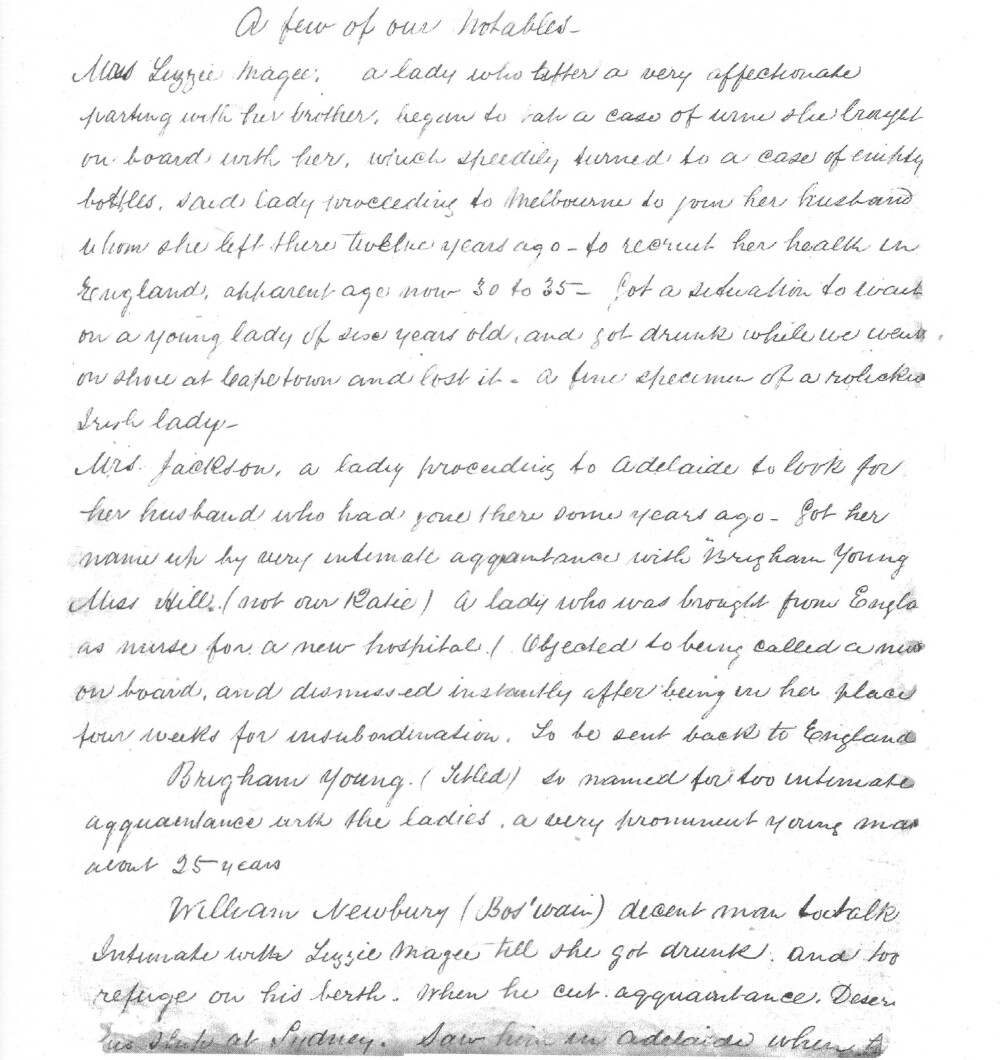 A few of our Notables -
Mrs Lizzie Magee. a lady who after a very affectionate
parting with her brother, began to a case of wine she brought
on board with her, which speedily turned to a case of empty
bottles. said lady proceeding to Melbourne to join her husband
whom she left there twelve years ago - to recruit her health in
England. apparent age now 30 to 35 - Got a situation to wait
on a young lady of six years old, and got drunk while we were
on shore at Capetown and lost it - a fine specimen of a
Irish lady -
Mrs. Jackson, a lady proceeding to Adelaide to look for
her husband who had gone there some years ago - Got her
name up by very intimate aqquaintance with "Brigham Young
Miss Hill. (not our Katie) A lady who was brought from Engla
as nurse for a new hospital. (Objected to being called a
on board, and dismissed instantly after being in her place
four weeks for insubordination. To be sent back to England
Brigham Young. (Titled) so named for too intimate
aqquaintance with the ladies, a very prominent young man
about 25 years
William Newbury (Bos'wain) decent man to talk
Intimate with Lizzie Magee till she got drunk. and too
refuge on his berth. When he cut aqquaintance. Deser
his ship at Sydney. Saw him in Adelaide when